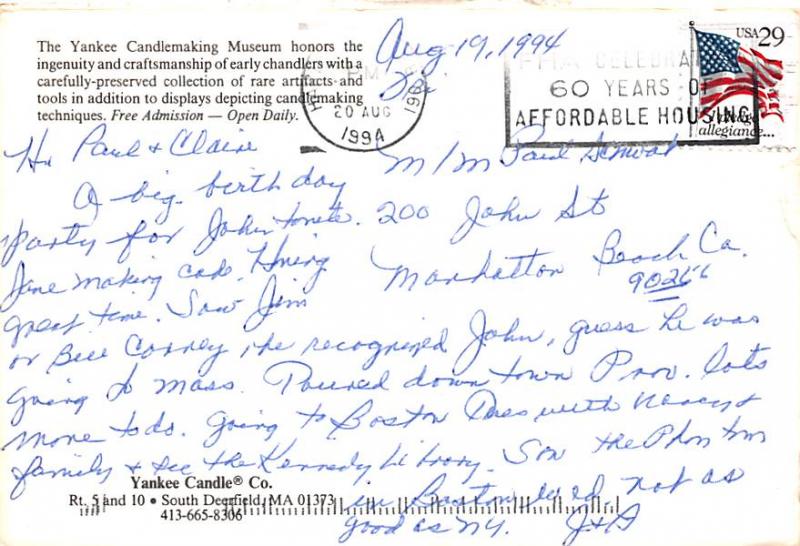 The Yankee Candlemaking Museum honors the
ingenuity and craftsmanship of early chandlers with a
carefully-preserved collection of rare artifacts and
tools in addition to displays depicting candlemaking
techniques. Free Admission — Open Daily.
Aug 19, 1994
Fri
PM
20 AUG
1994
FHA CELEBRA
60 YEARS OF
AFFORDABLE HOUSING
USA 29
I pledge
allegiance...
Hi Paul + Claire
A big birthday
party for John tonite.
Jane making cake. Having
great time. Saw Jim
or Bill Conroy, he recognized John, guess he was
going to Mass. Toured downtown Prov. lots
more to do. Going to Boston Tues with Nancy +
family + see the Kennedy Library. Saw the Phantom
in Boston Wed. not as
good as NY. J+A
M/M Paul
200 John St
Manhatton Beach Ca.
90266
Yankee Candle® Co.
Rt. 5 and 10 • South Deerfield, MA 01373
413-665-8306